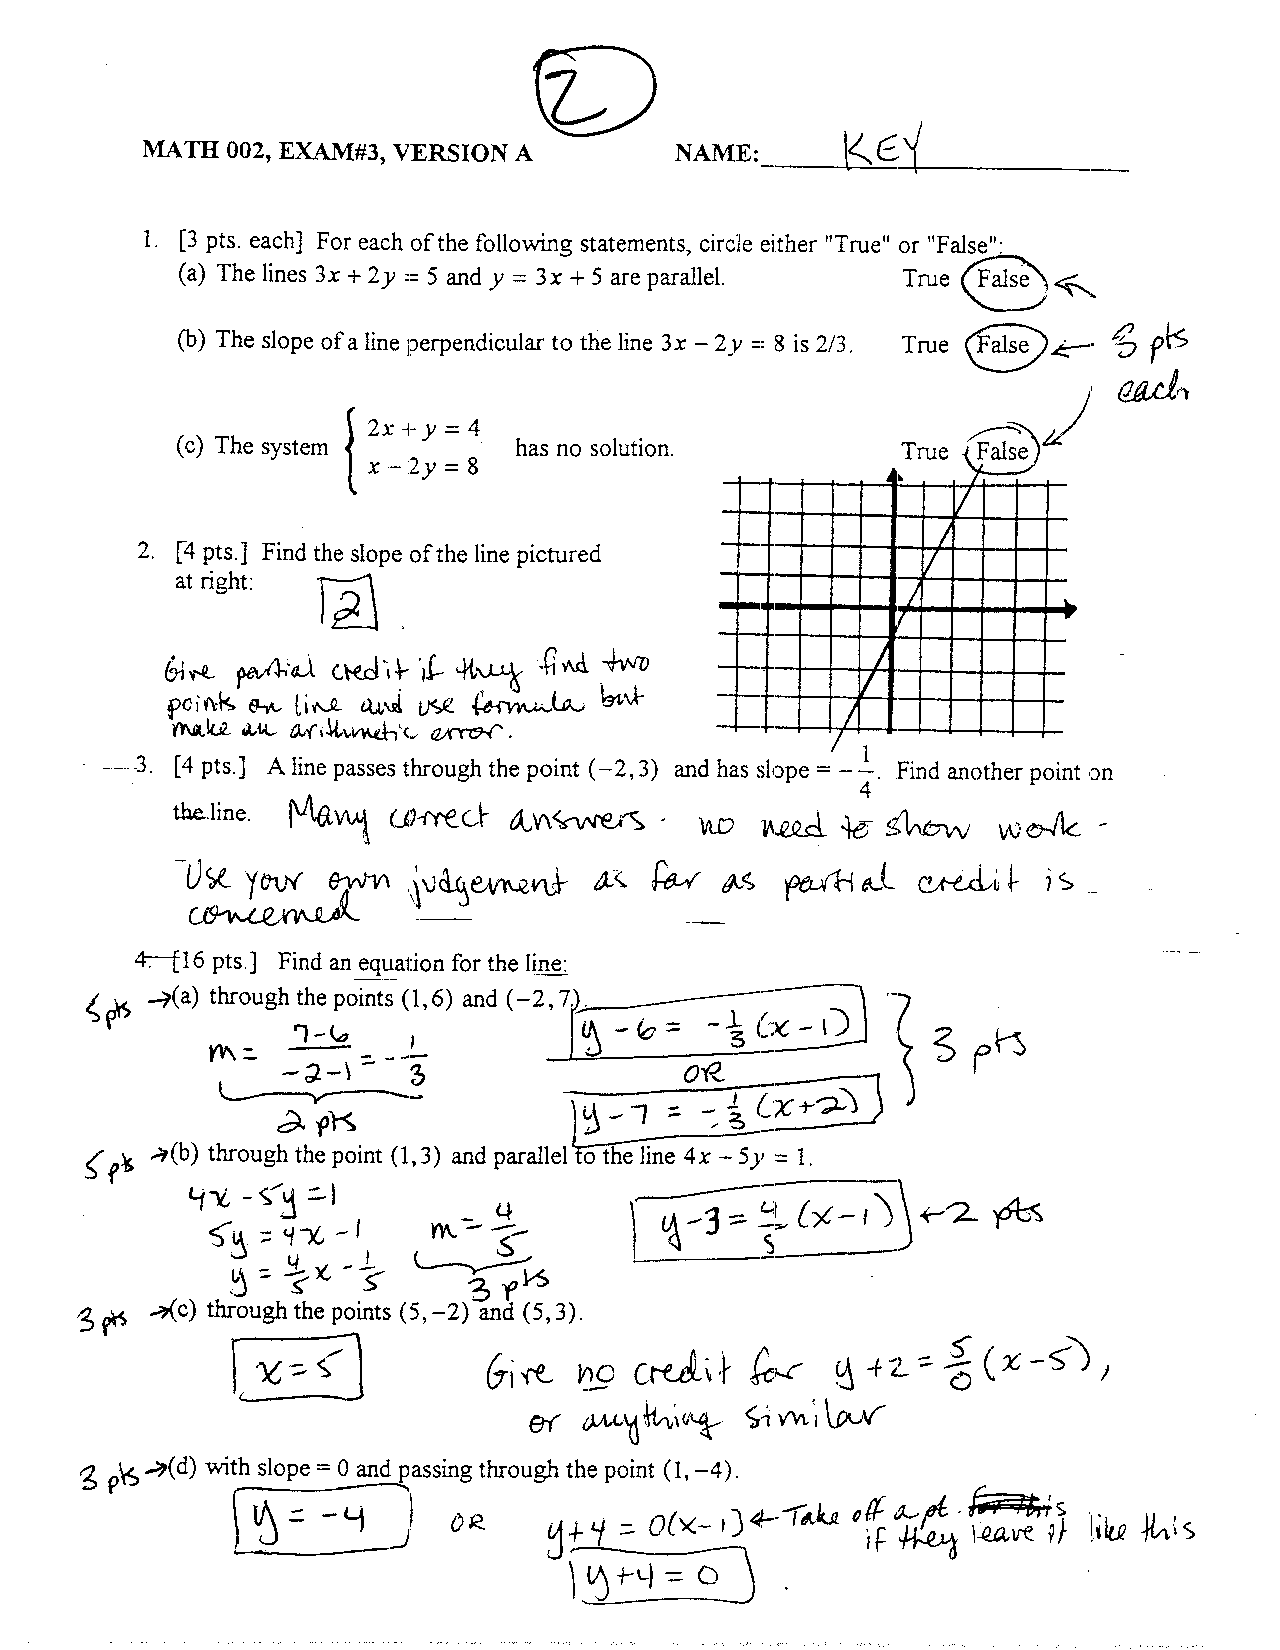 2
MATH 002, EXAM#3, VERSION A NAME: KEY
1. [3 pts. each] For each of the following statements, circle either "True" or "False":
(a) The lines 3x + 2y = 5 and y = 3x + 5 are parallel. True False
(b) The slope of a line perpendicular to the line 3x − 2y = 8 is 2/3. True False ← 3 pts
each
2x + y = 4
(c) The system { has no solution. True False
x − 2y = 8
2. [4 pts.] Find the slope of the line pictured
at right:
2
Give partial credit if they find two
points on line and use formula but
make an arithmetic error.
3. [4 pts.] A line passes through the point (−2,3) and has slope = −1/4. Find another point on
the line. Many correct answers - no need to show work -
Use your own judgement as far as partial credit is
concerned
4. [16 pts.] Find an equation for the line:
5 pts →(a) through the points (1,6) and (−2,7).
m = (7-6)/(-2-1) = -1/3
2 pts
y - 6 = -1/3 (x - 1)
OR
y - 7 = -1/3 (x+2)
3 pts
5 pts →(b) through the point (1,3) and parallel to the line 4x − 5y = 1.
4x - 5y = 1
5y = 4x - 1
y = 4/5 x - 1/5
m = 4/5
3 pts
y-3 = 4/5 (x-1) ← 2 pts
3 pts →(c) through the points (5,−2) and (5,3).
x = 5 Give no credit for y+2 = 5/0 (x-5),
or anything similar
3 pts →(d) with slope = 0 and passing through the point (1,−4).
y = -4 OR y+4 = 0(x-1) ← Take off a pt.
if they leave it like this
y+4 = 0